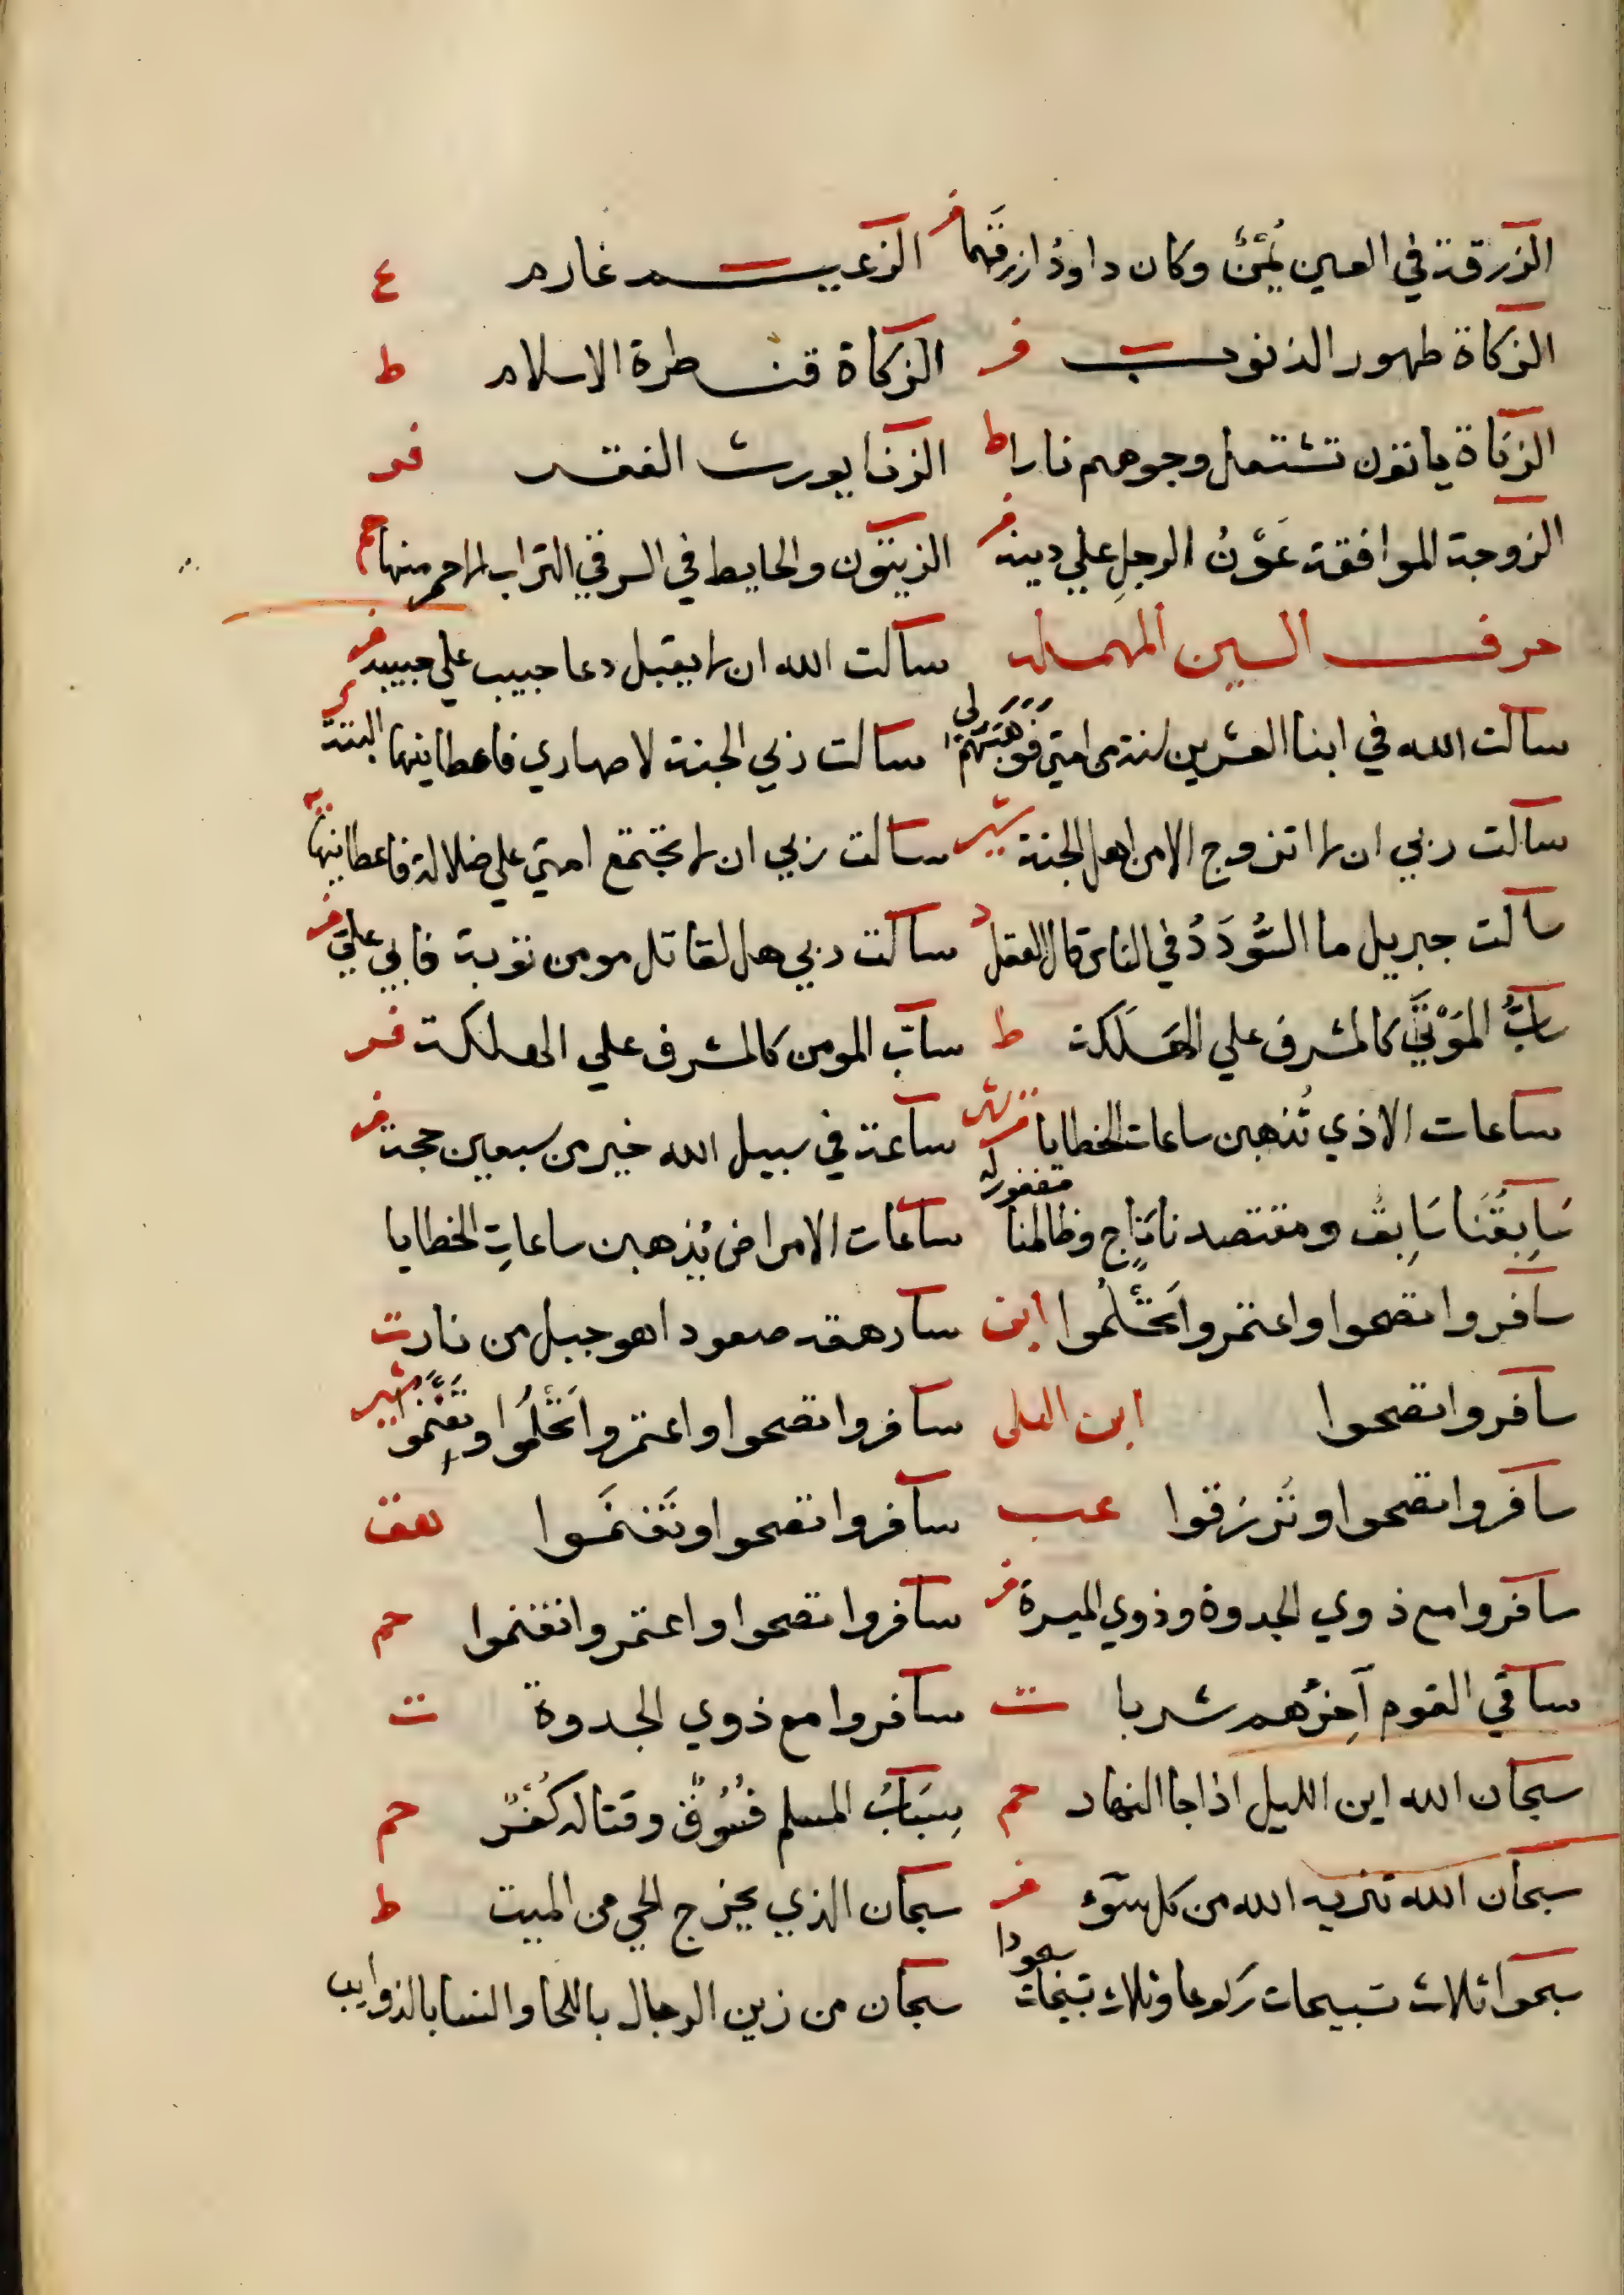 الزرقة في العين يُمْنٌ وكان داودُ ازرقَها فر الزعيم غارم ع
الزكاة طهور الذنوب فر الزكاة قنطرة الاسلام ط
الزناة ياتون تشتعل وجوههم نارا ط الزنا يورث الفقر فر
الزوجة الموافقة عَوْنُ الرجلِ علي دينه فر الزيتون والحايط في السرقي التراب لاحمر منها حم
حرف السين المهملة سالت الله ان لا يقبل دعا حبيب علي حبيبه فر
سالت الله في ابنا العشرين من امتي فوهبهم لي سالت ربي الجنة لاصهاري فاعطانيها البتة
سالت ربي ان لا اتزوج الا من اهل الجنة شير سالت ربي ان لا تجتمع امتي علي ضلالة فاعطانيها
سالت جبريل ما السُّودَدُ في الناس قال العقل سالت ربي هل لقاتل مومن توبة فابي علي فر
سابُّ المَوْتَي كالمشرف علي الهَلَكة ط سابّ المومن كالمشرف علي الهلكة فر
ساعات الاذي تُذهبن ساعات الخطايا ساعة في سبيل الله خير من سبعين حجة فر
سَابِقُنَا سَابِقٌ ومقتصدنا نَاجٍ وظالمنا مغفور له ساعات الامراض يُذهبن ساعاتِ الخطايا
سافروا تصحوا واعتمروا تحتلموا سارهقه صعودا هو جبل من نار ت
سافروا تصحوا ابن العلي سافروا تصحوا واعتمروا تحتلُموا وتغنموا شير
سافروا تصحوا وتُرزقوا عب سافروا تصحوا وتَغنَموا هق
سافروا مع ذوي الجدوة وذوي الميسرة فر سافروا تصحوا واعتمروا تغنموا حم
ساقي القوم آخِرُهم شربا ت سافروا مع ذوي الجدوة ت
سبحان الله اين الليل اذا جا النهار حم سِبَابُ المسلم فُسُوقٌ وقتاله كُفْرٌ حم
سبحان الله تنزيه الله من كل سوء فر سبحان الذي يخرج الحي من الميت ط
سبحوا ثلاث تسبيحات ركوعا وثلاث تسبيحات سجودا سبحان من زين الرجال باللحا والنسا بالذوايب